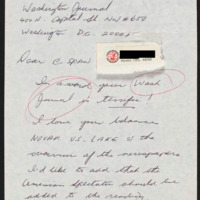 Washington Journal
400 N. Capitol St NW #650
Washington D.C. 20001
Dear C-SPAN
In a word your Wash
Journal is terrific!
I love your balance
of the
newspapers
I'd like to add that the
American Spectator should be
added to the reading